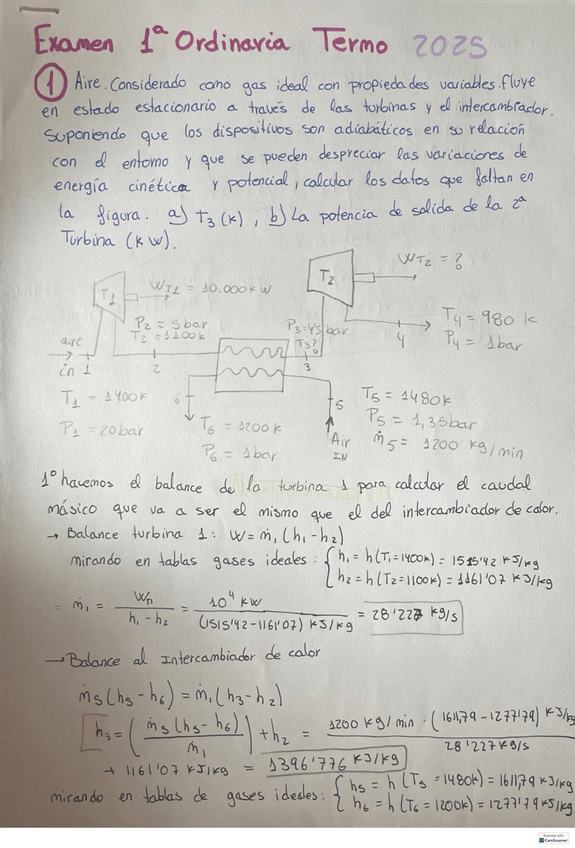 Examen 1ª Ordinaria Termo 2025
① Aire. Considerado como gas ideal con propiedades variables. Fluye
en estado estacionario a través de las turbinas y el intercambiador.
Suponiendo que los dispositivos son adiabáticos en su relación
con el entorno y que se pueden despreciar las variaciones de
energía cinética y potencial, calcular los datos que faltan en
la figura. a) T3 (k) ; b) La potencia de salida de la 2ª
Turbina (kW).
T1
WT1 = 10.000 kW
T2
WT2 = ?
P2 = 5 bar
T2 = 1100k
P3 = 4'5 bar
T3?
T4 = 980 k
P4 = 1 bar
aire
in 1
2
3
4
T1 = 1400k
P1 = 20 bar
6
T6 = 1200k
P6 = 1 bar
5
Air
IN
T5 = 1480k
P5 = 1,35 bar
ṁ5 = 1200 kg/min
1º hacemos el balance de la turbina 1 para calcular el caudal
másico que va a ser el mismo que el del intercambiador de calor.
→ Balance turbina 1: W = ṁ1 (h1 - h2)
mirando en tablas gases ideales: { h1 = h (T1 = 1400k) = 1515'42 kJ/kg
h2 = h (T2 = 1100k) = 1161'07 kJ/kg
= ṁ1 = WT1 / (h1 - h2) = 10⁴ kW / (1515'42 - 1161'07) kJ/kg = 28'227 kg/s
→ Balance al Intercambiador de calor
ṁ5 (h5 - h6) = ṁ1 (h3 - h2)
h3 = ( ṁ5 (h5 - h6) / ṁ1 ) + h2 = 1200 kg/min · (1611,79 - 1277'79) kJ/kg / 28'227 kg/s
+ 1161'07 kJ/kg = 1396'776 kJ/kg
mirando en tablas de gases ideales: { h5 = h (T5 = 1480k) = 1611,79 kJ/kg
h6 = h (T6 = 1200k) = 1277'79 kJ/kg
Scanned with
CamScanner